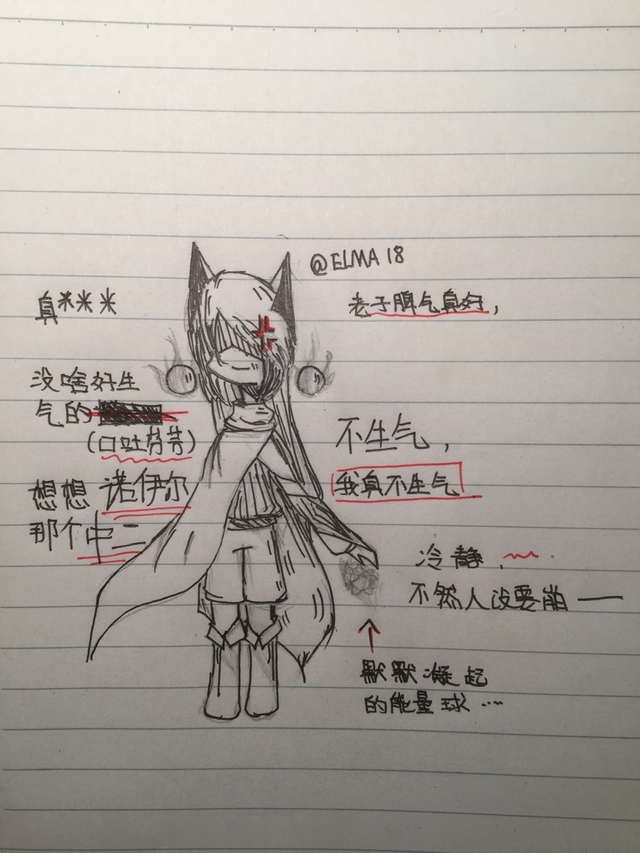 @ELMA 18
真***
老子脾气真好,
没啥好生
气的
(口吐芬芳)
不生气,
我真不生气
想想 诺伊尔
那个中二
冷静.~
不然人设要崩——
↑
默默凝起
的能量球....